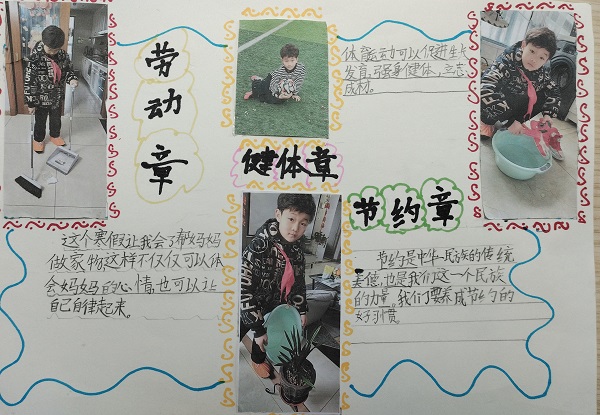 劳
动
章
体育运动可以促进生长
发育,强身健体,立志
成材。
健体章
节约章
这个寒假让我会了帮妈妈
做家物这样不仅仅可以体
会妈妈的心情,也可以让
自己自律起来。
节约是中华民族的传统
美德,也是我们这一个民族
的力量。我们要养成节约的
好习惯。